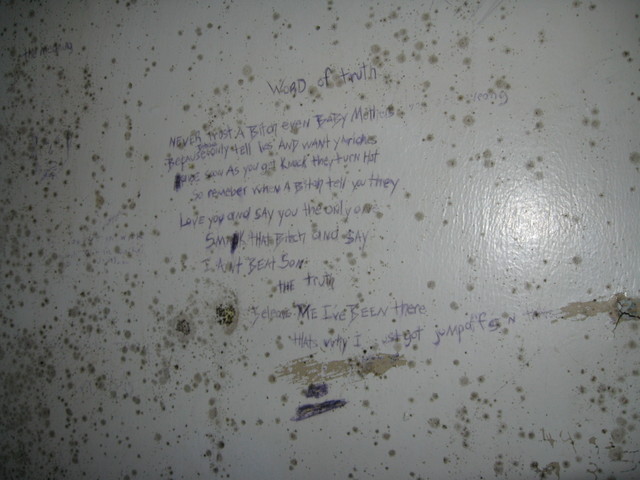 WORD of truth
NEVER trust A Bitch even Baby Mothers
they tell lies AND want y
soon As you get knock they turn Hot
So remeber when A Bitch tell you they
Love you and say you the only on
SMAK that Bitch and SAY
I AINT BEAT SON
THE truth
ME I've BEEN there
thats why I st got jumpoffs n